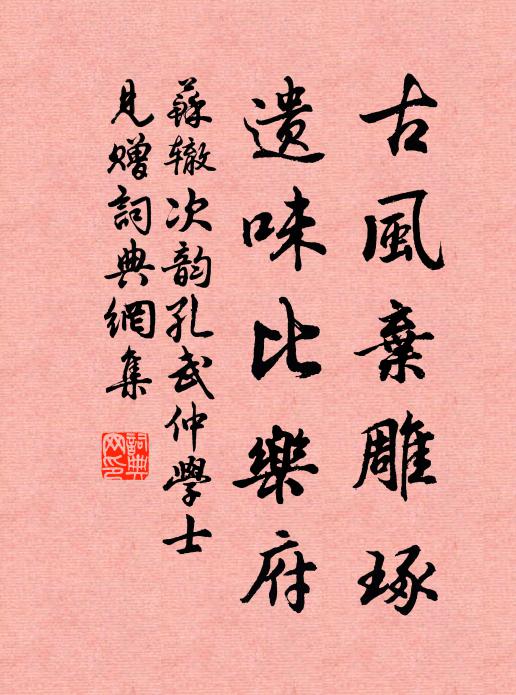 古風棄雕琢
遺味比樂府
蘇辙次韵孔武仲學士
見赠詞典網集
詞典
网印